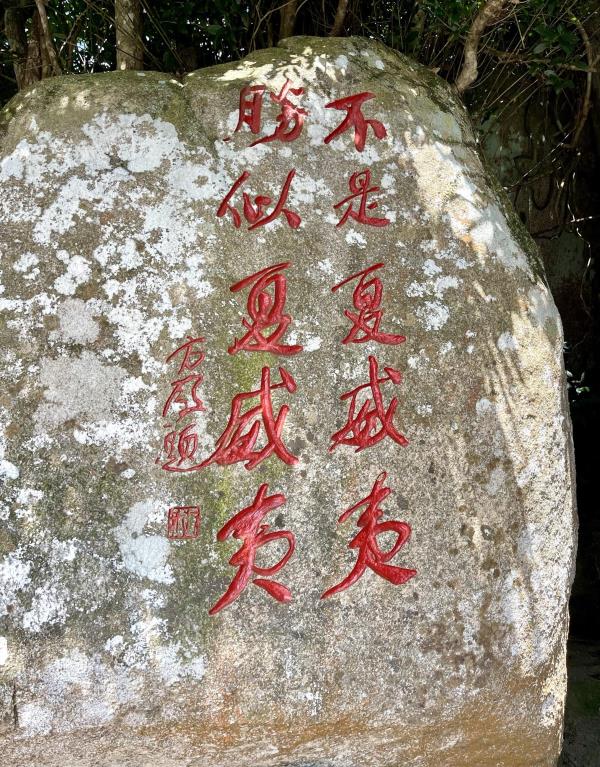 不是夏威夷
胜似夏威夷
方毅题